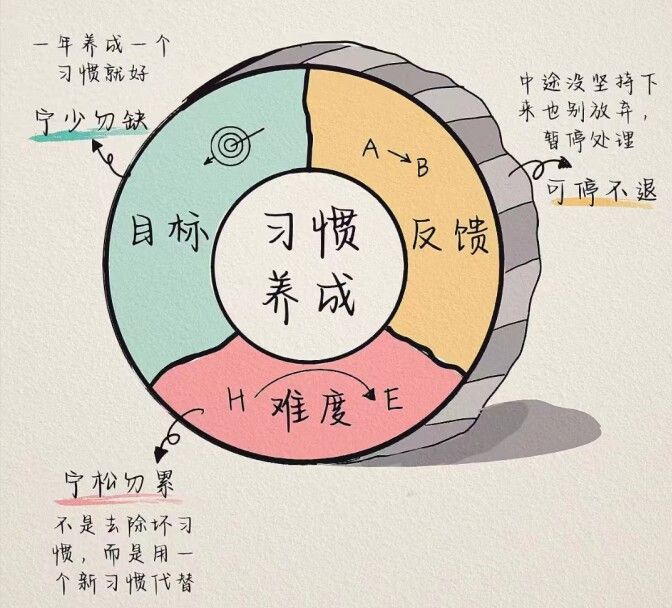 一年养成一个
习惯就好
宁少勿缺
目标
A → B
反馈
中途没坚持下
来也别放弃，
暂停处理
可停不退
习惯
养成
H
难度
E
宁松勿累
不是去除坏习
惯，而是用一
个新习惯代替